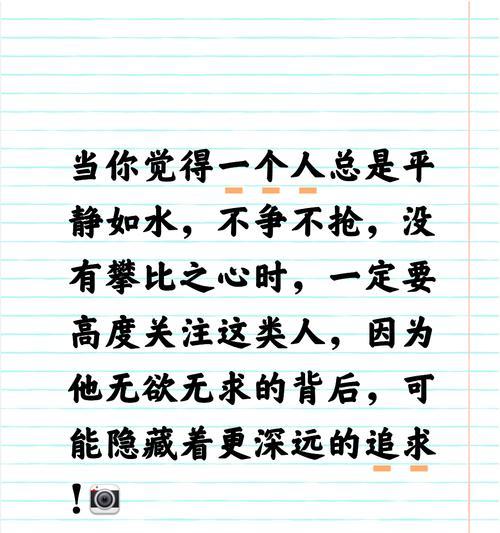 当你觉得一个人总是平
静如水，不争不抢，没
有攀比之心时，一定要
高度关注这类人，因为
他无欲无求的背后，可
能隐藏着更深远的追求
！📷